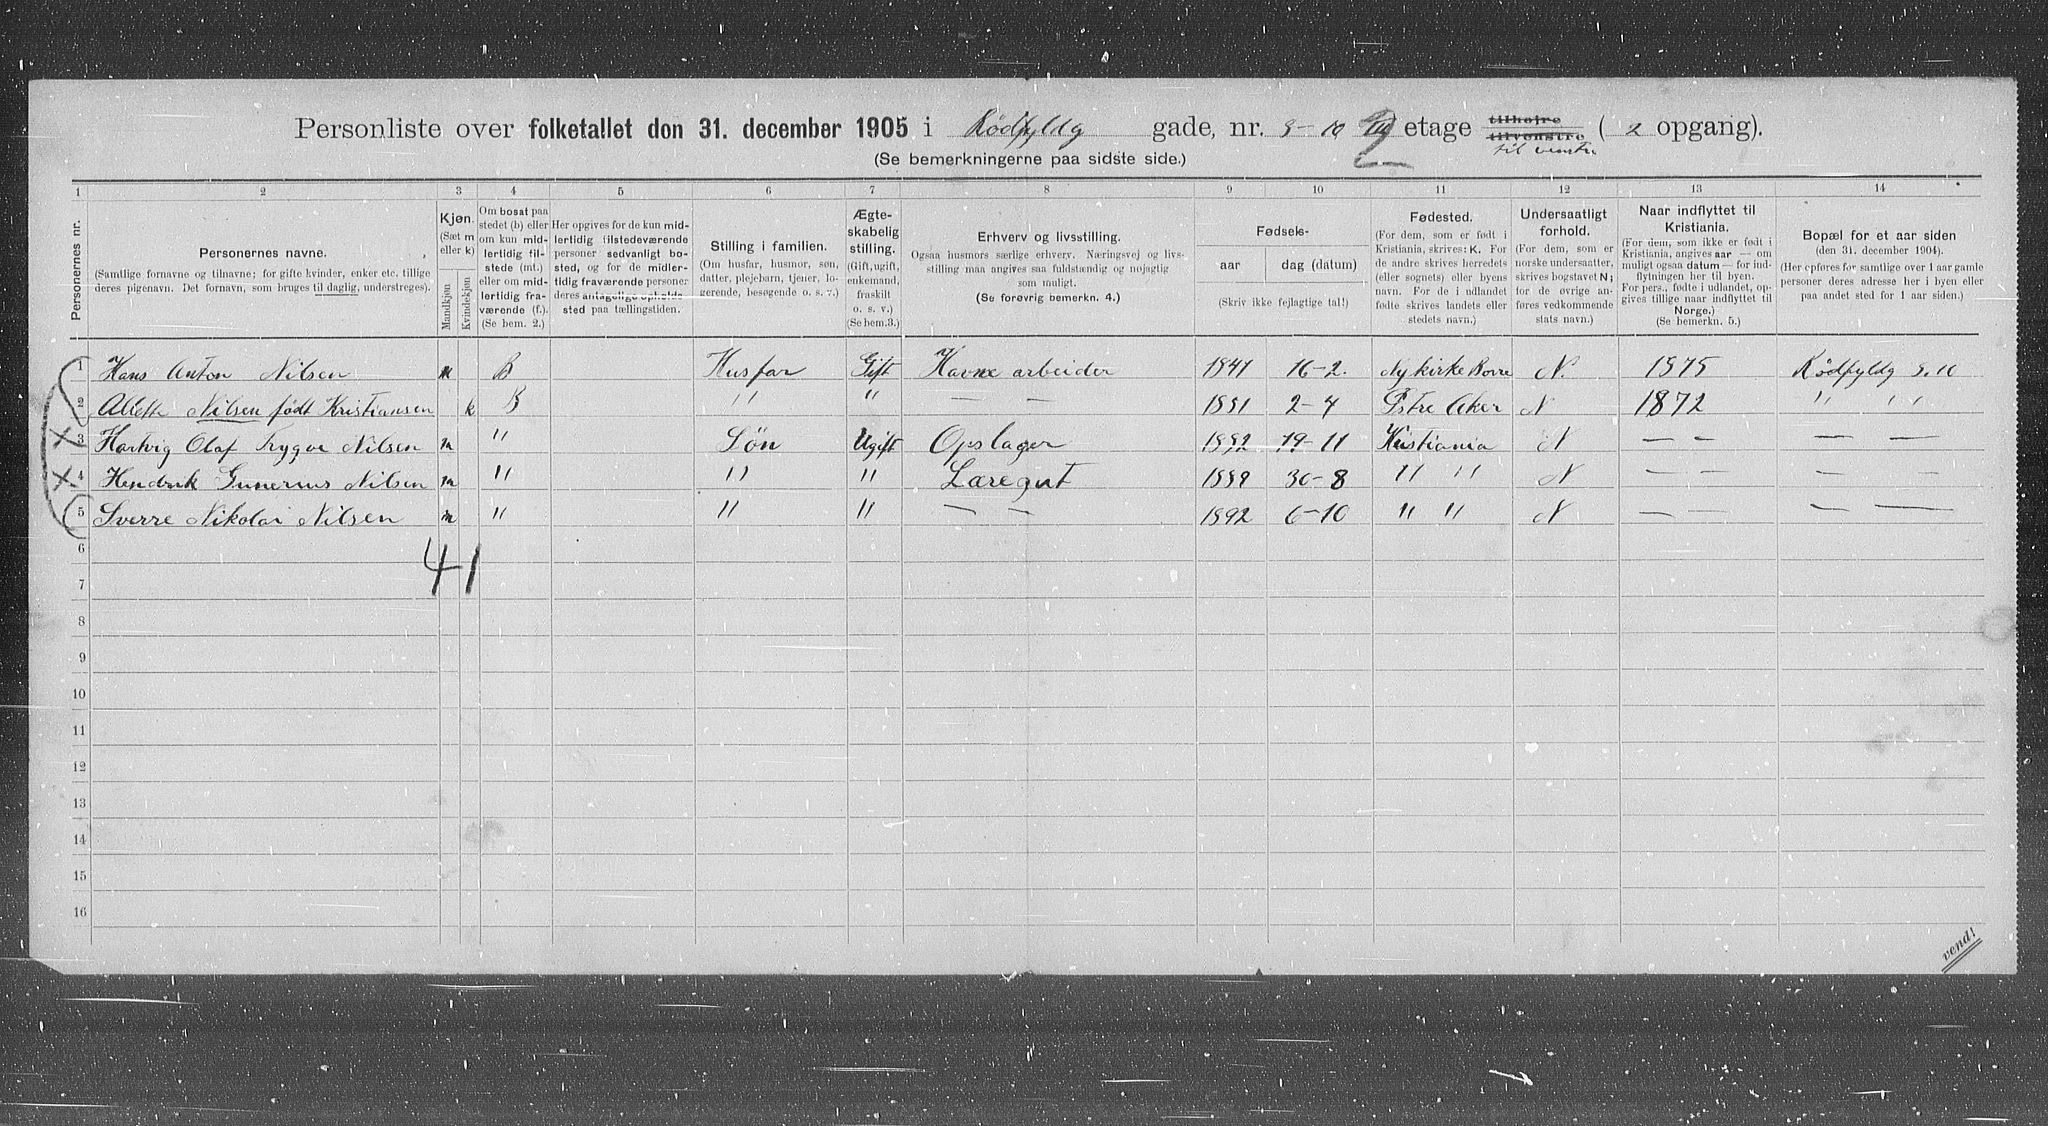 Personliste over folketallet den 31. december 1905 i Rødfyldg gade, nr. 9-10 etage tilhøire tilvenstre til venstre ( 2 opgang).
(Se bemerkningerne paa sidste side.)
1 2 3 4 5 6 7 8 9 10 11 12 13 14
Personernes nr.
Personernes navne.
(Samtlige fornavne og tilnavne; for gifte kvinder, enker etc. tillige deres pigenavn. Det fornavn, som bruges til daglig, understreges).
Kjøn.
(Sæt m eller k)
Mandkjøn
Kvindekjøn
Om bosat paa stedet (b) eller om kun midlertidig tilstede (mt.) eller om midlertidig fraværende (f.).
(Se bem. 2.)
Her opgives for de kun midlertidig tilstedeværende personer sedvanligt bosted, og for de midlertidig fraværende personer deres antagelige opholdssted paa tællingstiden.
Stilling i familien.
(Om husfar, husmor, søn, datter, plejebarn, tjener, logerende, besøgende o. s. v.)
Ægteskabelig stilling.
(Gift, ugift, enkemand, fraskilt o. s. v.)
(Se bem. 3.)
Erhverv og livsstilling.
Ogsaa husmors særlige erhverv. Næringsvej og livsstilling maa angives saa fuldstændig og nøjagtig som muligt.
(Se forøvrig bemerkn. 4.)
Fødsels-
aar
dag (datum)
(Skriv ikke fejlagtige tal!)
Fødested.
(For dem, som er født i Kristiania, skrives: K. For de andre skrives herredets (eller sognets) eller byens navn. For de i udlandet fødte skrives landets eller stedets navn.)
Undersaatligt forhold.
(For dem, som er norske undersaatter, skrives bogstavet N; for de øvrige anføres vedkommende stats navn.)
Naar indflyttet til Kristiania.
(For dem, som ikke er født i Kristiania, angives aar — om muligt ogsaa datum — for indflytningen her til byen. For pers., fødte i udlandet, opgives tillige naar indflyttet til Norge.)
(Se bemerkn. 5.)
Bopæl for et aar siden
(den 31. december 1904).
(Her opføres for samtlige over 1 aar gamle personer deres adresse her i byen eller paa andet sted for 1 aar siden.)
1 Hans Anton Nilsen m B Husfar Gift Havne arbeider 1841 16-2. Nykirke Borre N. 1875 Rødfyldg 9.10
2 Alette Nilsen født Kristiansen k B " " " — — 1851 2-4 Østre Aker N 1872 " " " "
3 Hartvig Olaf Trygve Nilsen m " Søn Ugift Opslager 1882 19-11 Kristiania N — — — —
4 Hendrik Gunerius Nilsen m " " " Læregut 1889 30-8 " " N — — — —
5 Sverre Nikolai Nilsen m " " " — — 1892 6-10 " " N — — — —
6
4 1
7
8
9
10
11
12
13
14
15
16
vend!